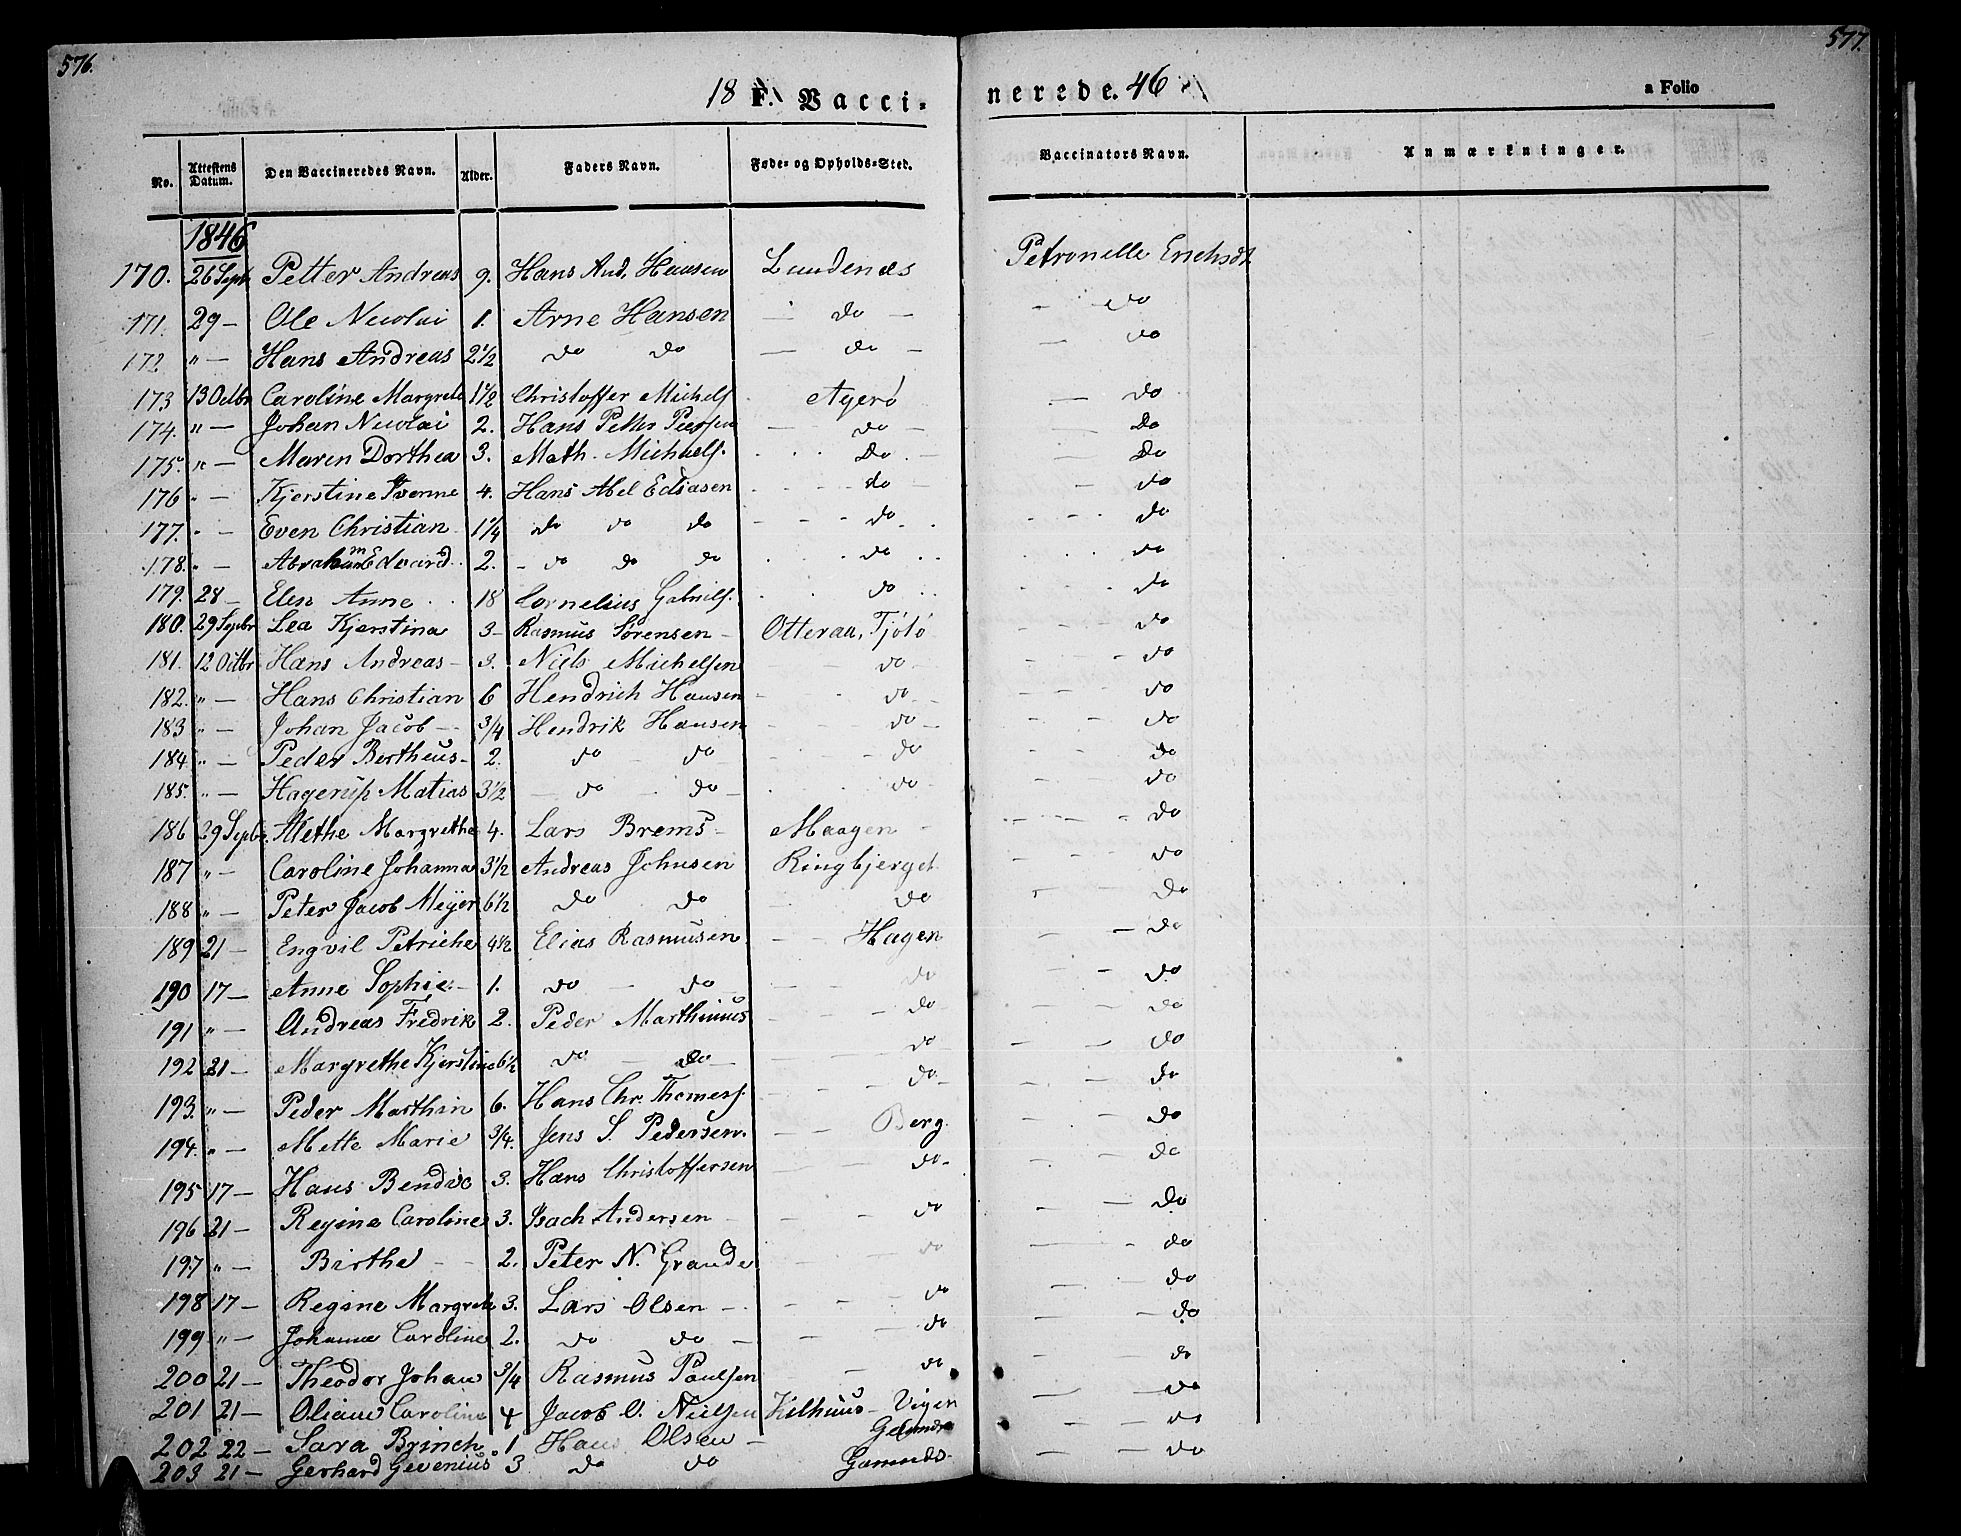 576.
577.
18 F. Vacci-nerede. 46
a Folio
No. Attestens Datum. Den Vaccineredes Navn. Alder. Faders Navn. Føde- og Opholds-Sted. Vaccinators Navn. Anmærkninger.
1846
170. 26 Septb Petter Andreas 9. Hans And. Hansen Lundenæs Petronelle
171. 29 — Ole Nicolai 1. Arne Hansen — do — — do
172 " — Hans Andreas 2 1/2 do do — do — — do
173 13 Octbr Caroline Margrete 1 1/2 Christoffer Michels. Agerø — do
174. " — Johan Nicolai 2. Hans Petter — do — — do
175. " — Maren Dorthea 3. Math. Michaels. do — — do
176 " — Kjerstine 4. Hans Abel do — — do
177. " — Even Christian 1 1/4 do do do - - - do - - - do
178. " — Abraham Edvard 2. - do do do do do
179. 28 — Elen Anne 18 Cornelius Gabriels. do do
180. 29 Sepbr Lea Kjerstina 3 - Rasmus Sørensen — Otteraa, Tjøtø - - - do
181. 12 Octbr Hans Andreas — 3. Niels Michelsen — do - — - - do
182. " — Hans Christian 6 Hendrich Hansen - do - — - - do
183 " — Johan Jacob — 3/4 Hendrik Hansen do — — - do
184. " — Peder Bertheus — 2. do — do - do — - do
185. " — Hagerup Matias 3 1/2 — do do — do - — - do
186 29 Sepbr. Alethe Margrethe 4. Lars Brems — Maagen - - - - do
187 " — Caroline Johanna 3 1/2 Andreas Johnsen Ringbjerget — - do
188 " — Peter Jacob Meyer 6 1/2 do do do — - do
189 21 — Engvil Petriche 4 1/2 Elias Rasmusen — — Hagen — — do
190 17 — Anne Sophie — 1. do — do do — - do
191 " — Andreas Fredrik 2. Peder Marthinus — - - do - — — - do
192 21 — Margrethe Kjerstine 6 1/2 do — do — — do - — — do
193. " — Peder Marthin 6. Hans Chr. Thomess. - - do - — — - do
194. " — Mette Marie 3/4. Jens S. Pedersen. — — Berg. — - do
195 17 — Hans Bendic 3. Hans Christoffersen — — do - — - do
196 21 — Regine Caroline 3. Isach Andersen — — - do — do
197 " — Birthe — 2. Peter N. Grande do — - do
198 17 — Regine Margrete 3. Lars Olsen — — — do — - do
199 " — Johanne Caroline 2. do do — — — do — — do
200 21 — Theodor Johan 3/4 Rasmus Paulsen — do — do
201 21 — Oliane Caroline 4 Jacob O. Nielsen — Vigen — — do
202 22 — Sara Brinch 1 Hans Olsen — — — do
203 21 — Gerhard Gevenius 3 do do — — do